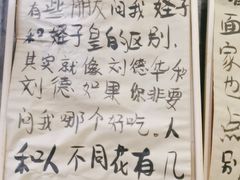 有些朋友问我蛭子
和蛭子皇的区别,
其实就像刘德华和
刘德,如果你非要
问我哪个好吃。人
和人不同花有几
面
家
也
点
别